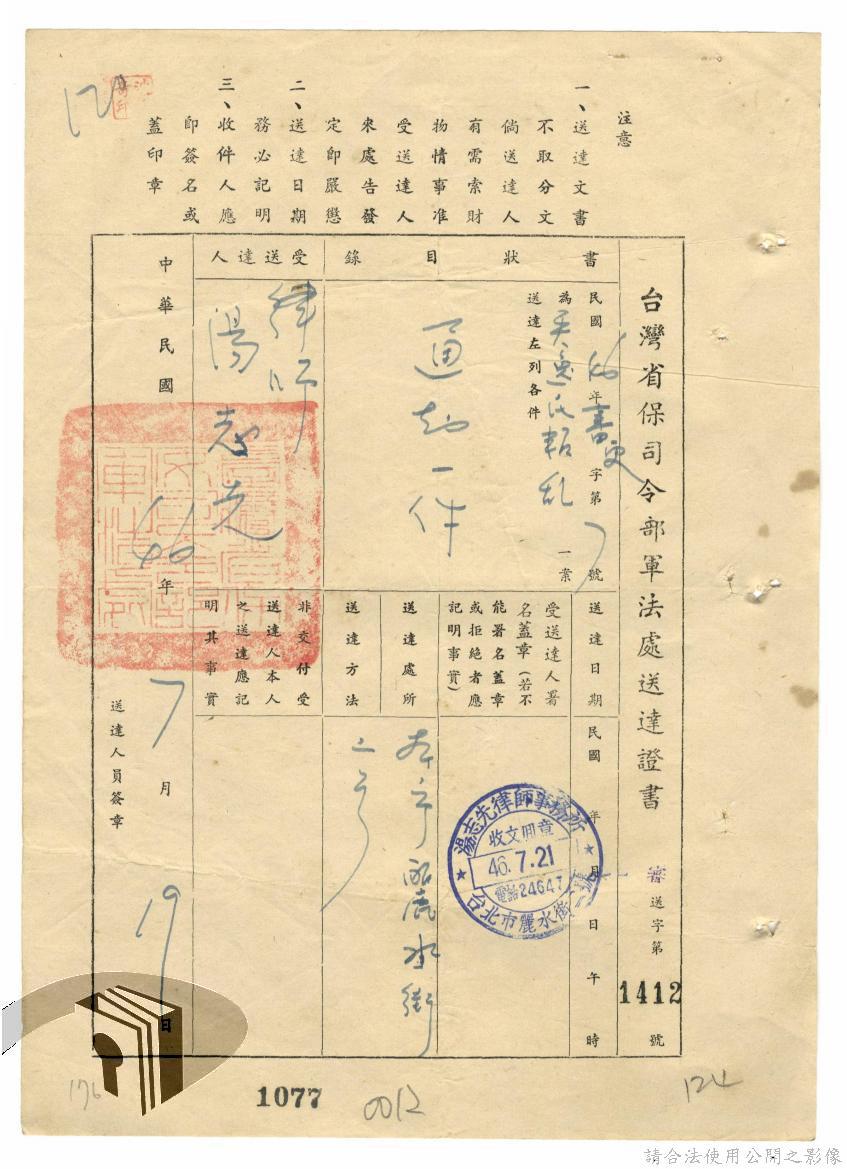 注意
一、送達文書
不取分文
倘送達人
有需索財
物情事准
受送達人
來處告發
定即嚴懲
二、送達日期
務必記明
三、收件人應
即簽名或
蓋印章
台灣省保司令部軍法處送達證書
審送字第1412號
書狀目錄
民國46年審更字第7號
為
叛乱
一案
送達左列各件
通知一件
受送達人
律師
湯志先
送達日期
民國 年 月 日 午 時
受送達人署
名蓋章(若不
能署名蓋章
或拒絕者應
記明事實)
湯志先律師事務所
收文回章
46.7.21
電話24647
台北市麗水街二號
送達處所
本市麗水街
二号
送達方法
非交付受
送達人本人
之送達應記
明其事實
中華民國46年7月19日
送達人員簽章
176
1077
0012
124
請合法使用公開之影像